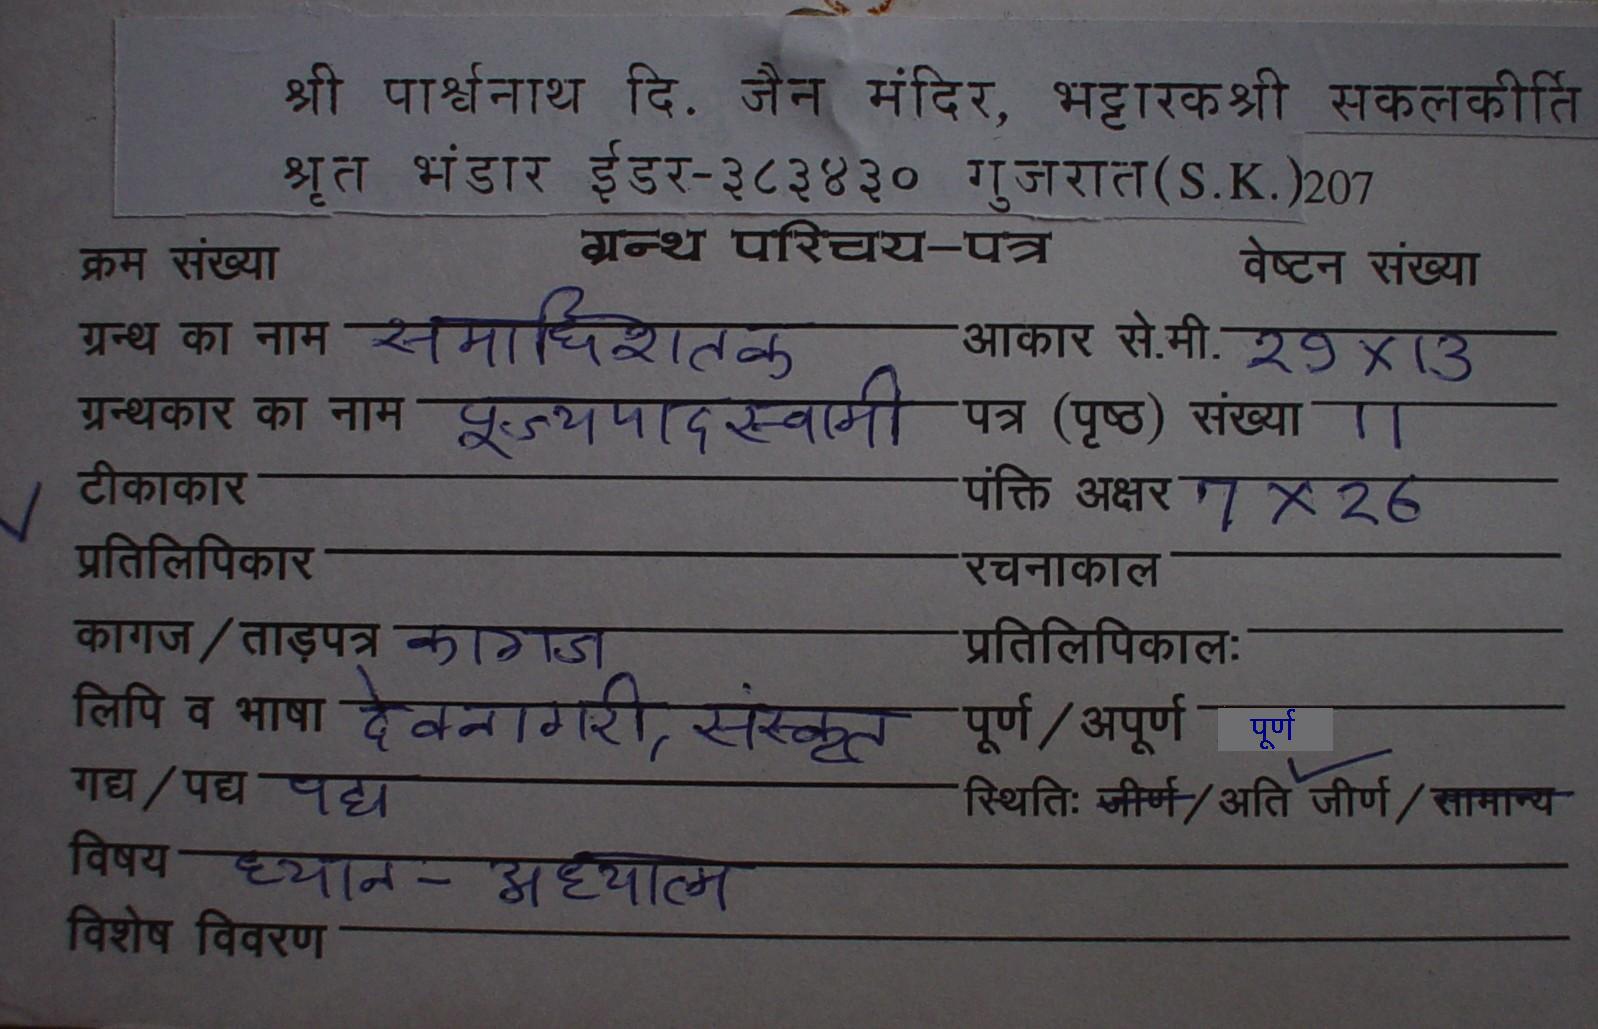 श्री पार्श्वनाथ दि. जैन मंदिर, भट्टारकश्री सकलकीर्ति
श्रृत भंडार ईडर-३८३४३० गुजरात(S.K.)207
क्रम संख्या ग्रन्थ परिचय-पत्र वेष्टन संख्या
ग्रन्थ का नाम समाधिशतक आकार से.मी. 29 X 13
ग्रन्थकार का नाम पूज्यपादस्वामी पत्र (पृष्ठ) संख्या 11
टीकाकार पंक्ति अक्षर 7 X 26
प्रतिलिपिकार रचनाकाल
कागज/ताड़पत्र कागज प्रतिलिपिकालः
लिपि व भाषा देवनागरी, संस्कृत पूर्ण/अपूर्ण पूर्ण
गद्य/पद्य पद्य स्थितिः जीर्ण/अति जीर्ण/सामान्य
विषय ध्यान - अध्यात्म
विशेष विवरण